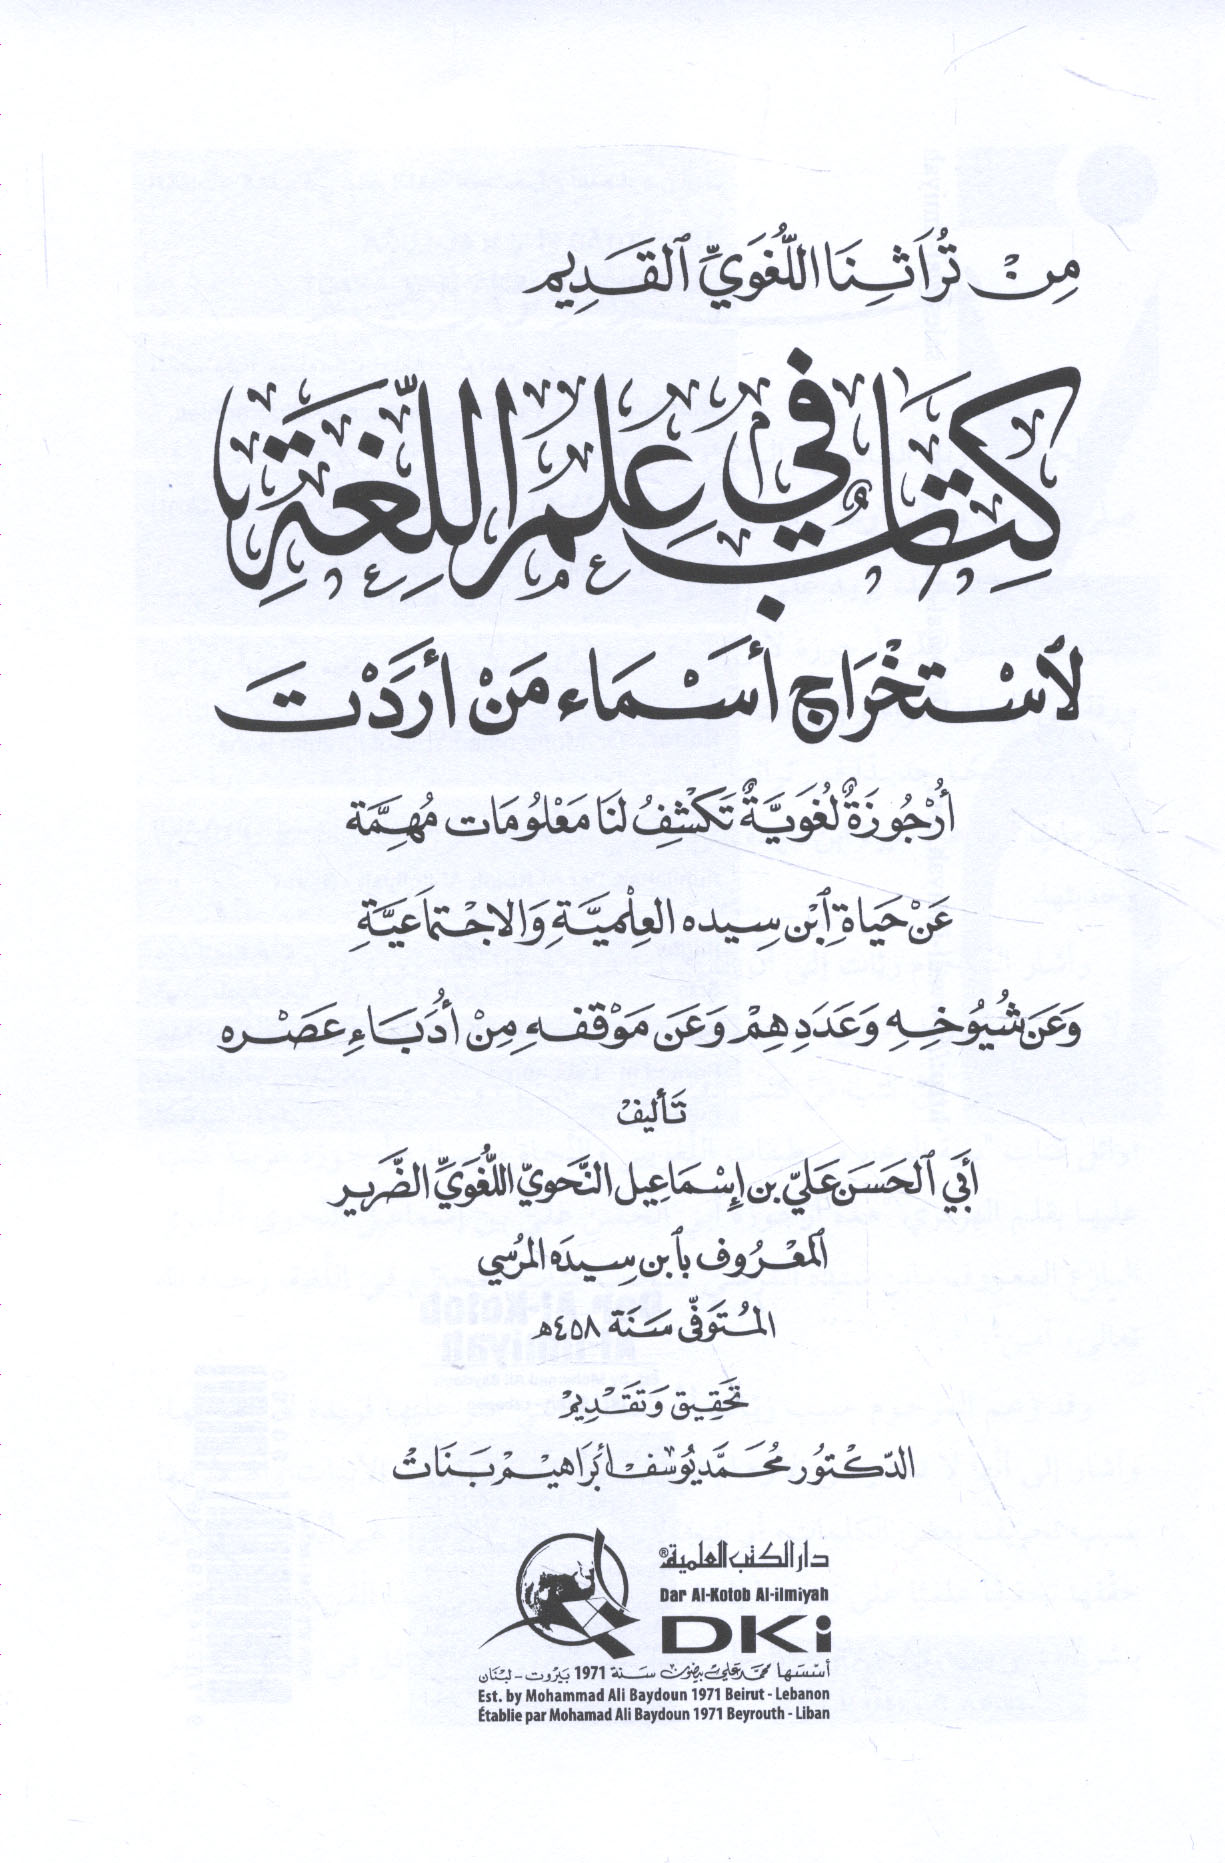 مِنْ تُرَاثِنَا اللُّغَوِيِّ ٱلقَدِيم
كِتَابٌ فِي عِلْمِ اللُّغَةِ
لٱسْتِخْرَاج أَسْمَاء مَنْ أَرَدْت
أُرْجُوزَةٌ لُغَوِيَّةٌ تَكْشِفُ لَنَا مَعْلُومَات مُهِمَّة
عَنْ حَيَاةِ ٱبْنِ سِيده العِلْمِيَّةِ وَالاجْتِمَاعِيَّةِ
وَعَن شُيُوخِهِ وَعَدَدِهِمْ وَعَن مَوْقِفِهِ مِنْ أُدَبَاءِ عَصْرِه
تَأليفْ
أَبي ٱلحَسَن عَليّ بن إسْمَاعِيل النَّحويّ اللُّغَويِّ الضَّرير
المعْرُوف بٱبن سِيدَه المُرسي
المُتَوَفّى سَنَة ٤٥٨هـ
تَحقِيق وَتَقدِيْم
الدّكتُور مُحَمَّد يُوسُف إبرَاهيْم بَنَات
دار الكتب العلمية®
Dar Al-Kotob Al-ilmiyah
DKi
أسّسَها محمد علي بيضون سنة 1971 بيروت - لبنان
Est. by Mohammad Ali Baydoun 1971 Beirut - Lebanon
Établie par Mohamad Ali Baydoun 1971 Beyrouth - Liban